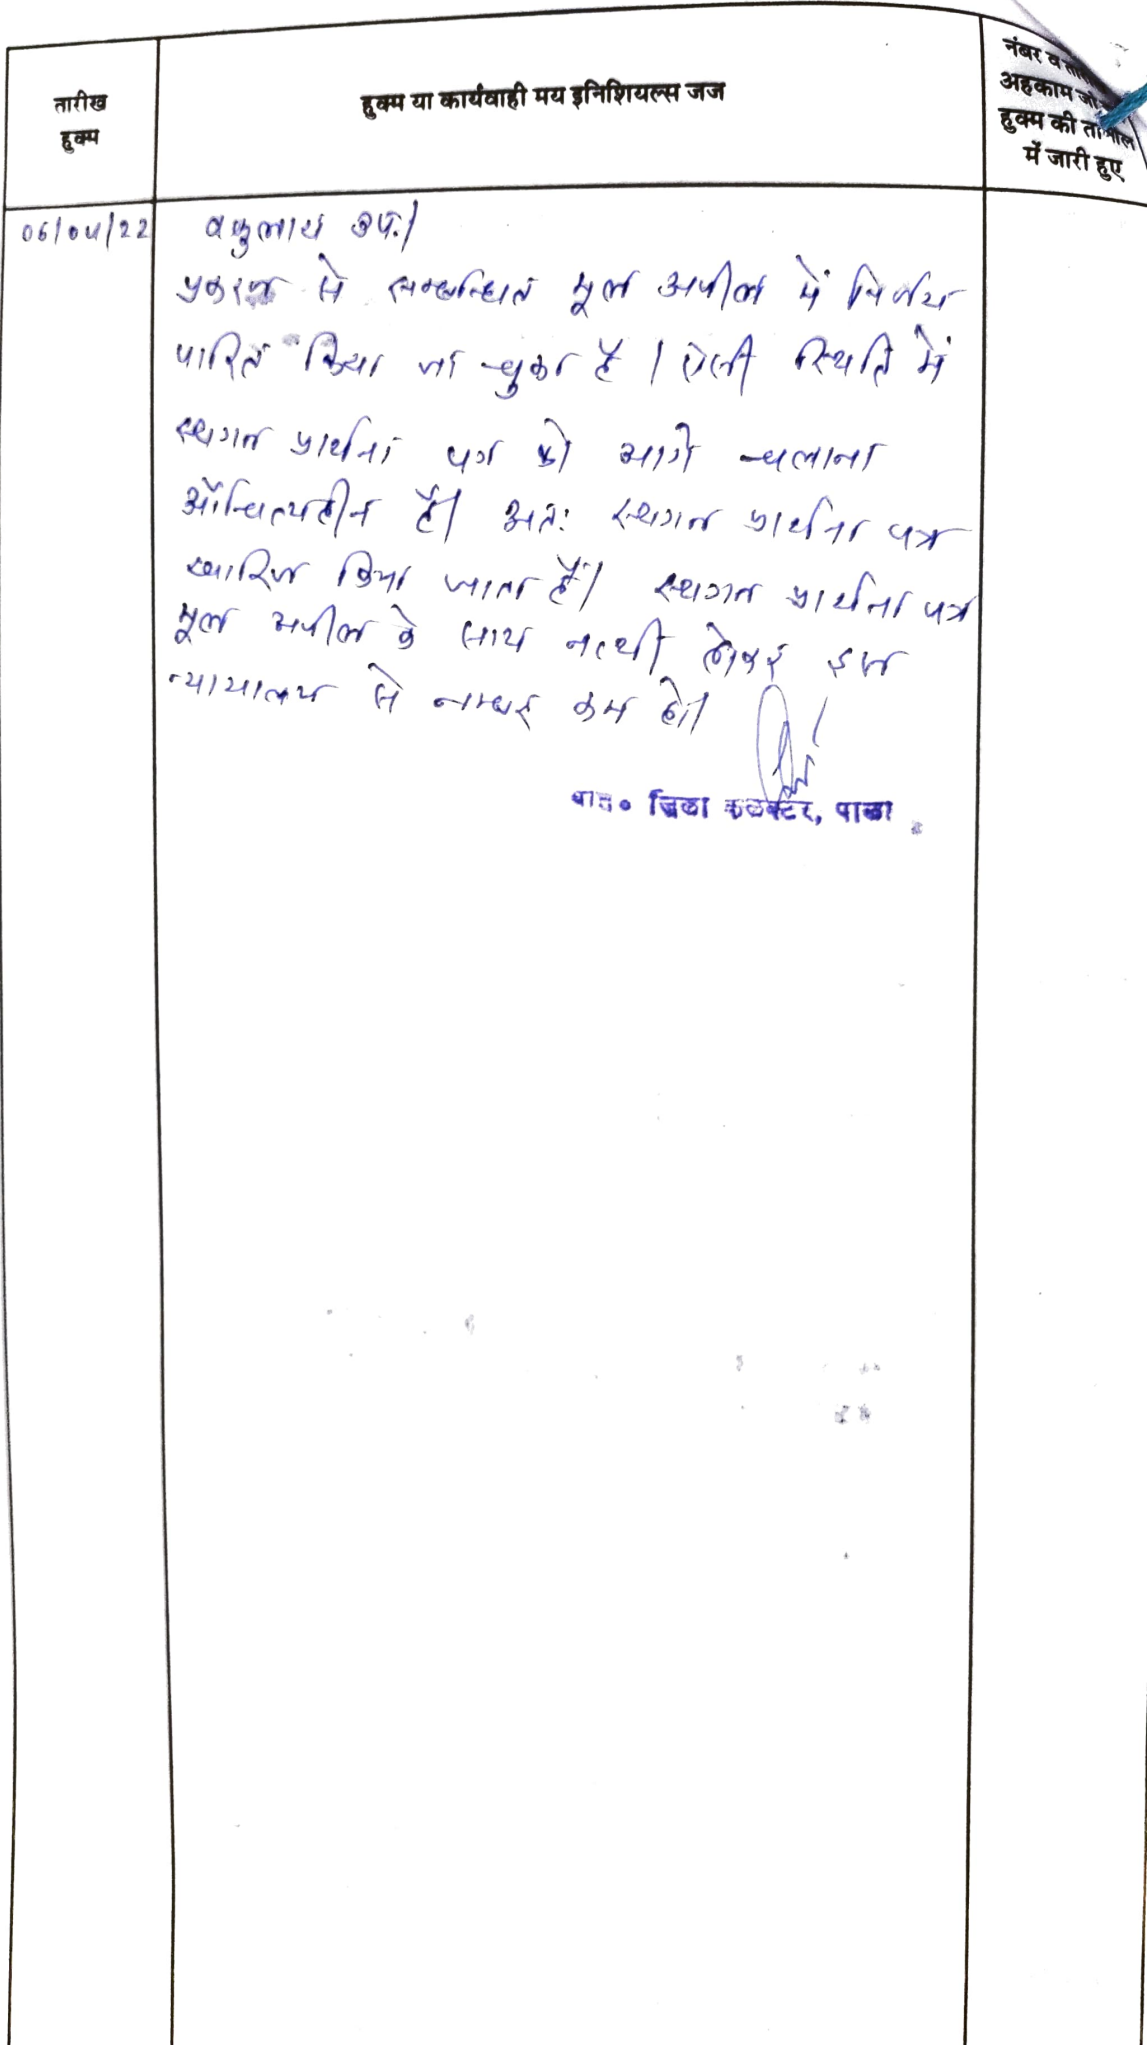 तारीख
हुक्म
हुक्म या कार्यवाही मय इनिशियल्स जज
नंबर व
अहकाम जो
हुक्म की तामील
में जारी हुए
06/04/22
वकुलाय उप.।
प्रकरण से सम्बन्धित मूल अपील में निर्णय
पारित किया जा चुका है। ऐसी स्थिति में
स्थगन प्रार्थना पत्र को आगे चलाना
औचित्यहीन है। अतः स्थगन प्रार्थना पत्र
खारिज किया जाता है। स्थगन प्रार्थना पत्र
मूल अपील के साथ नत्थी होकर इस
न्यायालय से नम्बर कम हो।
जिला कलक्टर, पाली